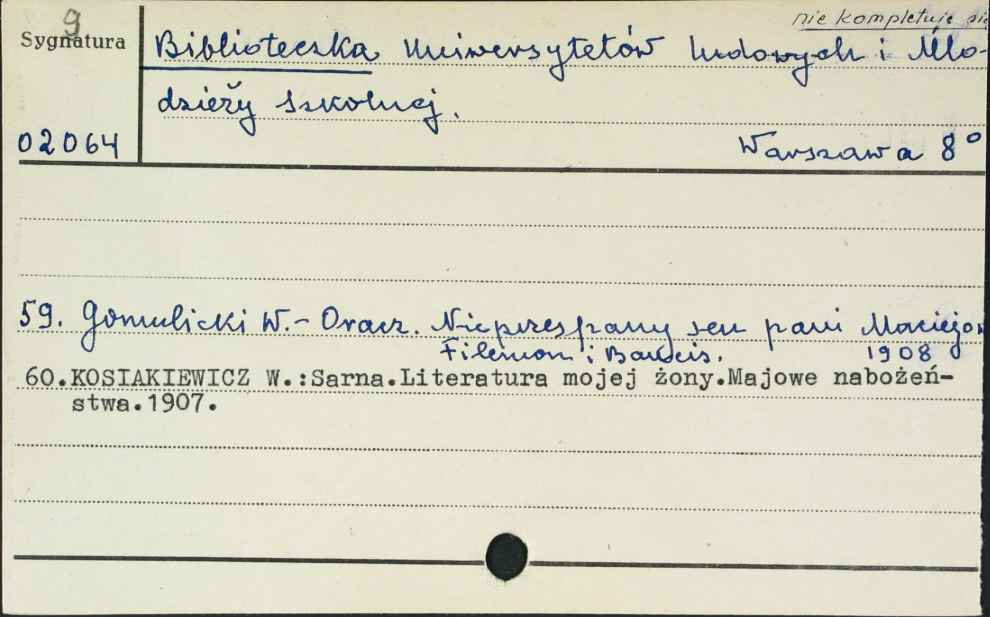 nie kompletuje się
9
Sygnatura
Biblioteczka Uniwersytetów ludowych i Mło-
dzieży szkolnej.
02064
Warszawa 8°
59. Gomulicki W. - Oracz. Nieprzespany sen pani Maciejow
Filemon i Baucis. 1908
60.KOSIAKIEWICZ W.:Sarna.Literatura mojej żony.Majowe nabożeń-
stwa.1907.